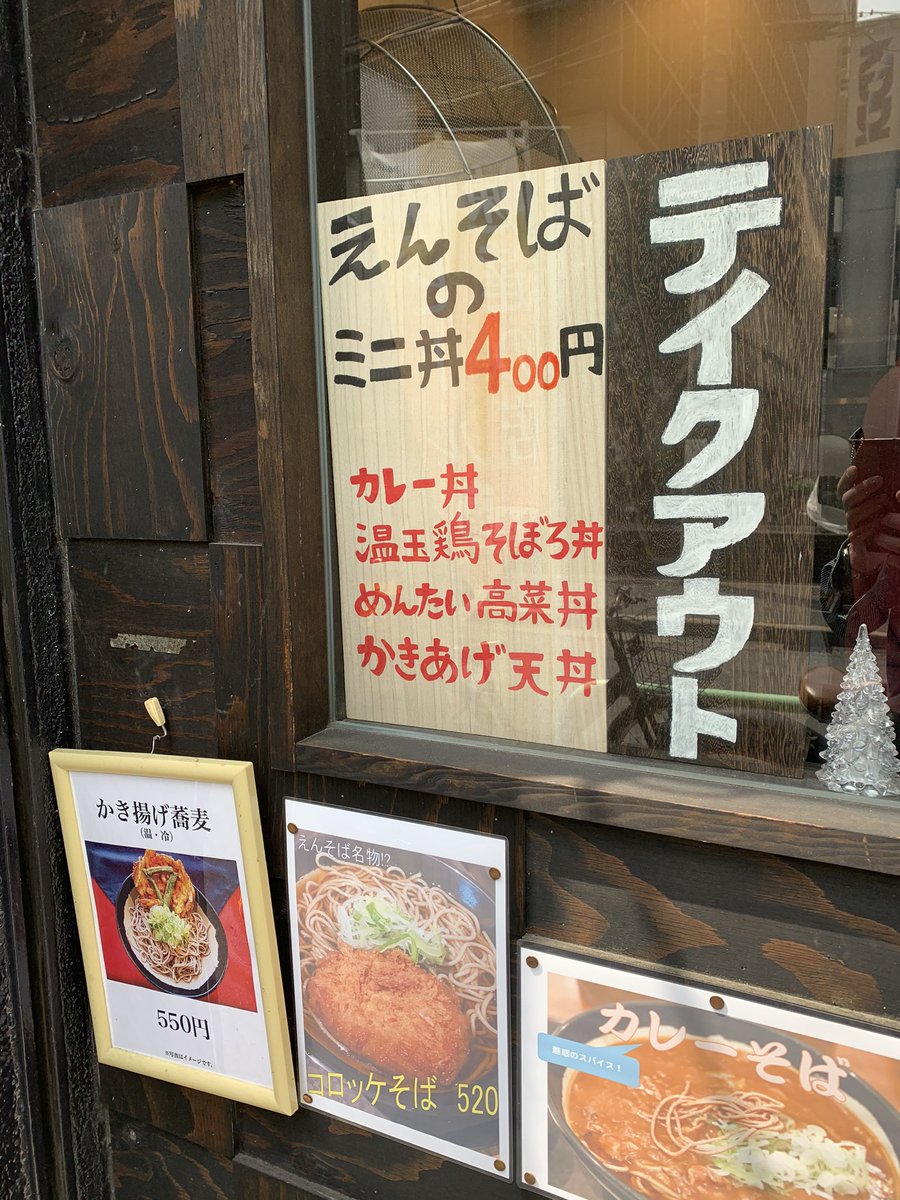 えんそば
の
ミニ丼400円
カレー丼
温玉鶏そぼろ丼
めんたい高菜丼
かきあげ天丼
テイクアウト
かき揚げ蕎麦
(温・冷)
550円
※写真はイメージです。
えんそば名物!?
コロッケそば 520
カレーそば
魅惑のスパイス！